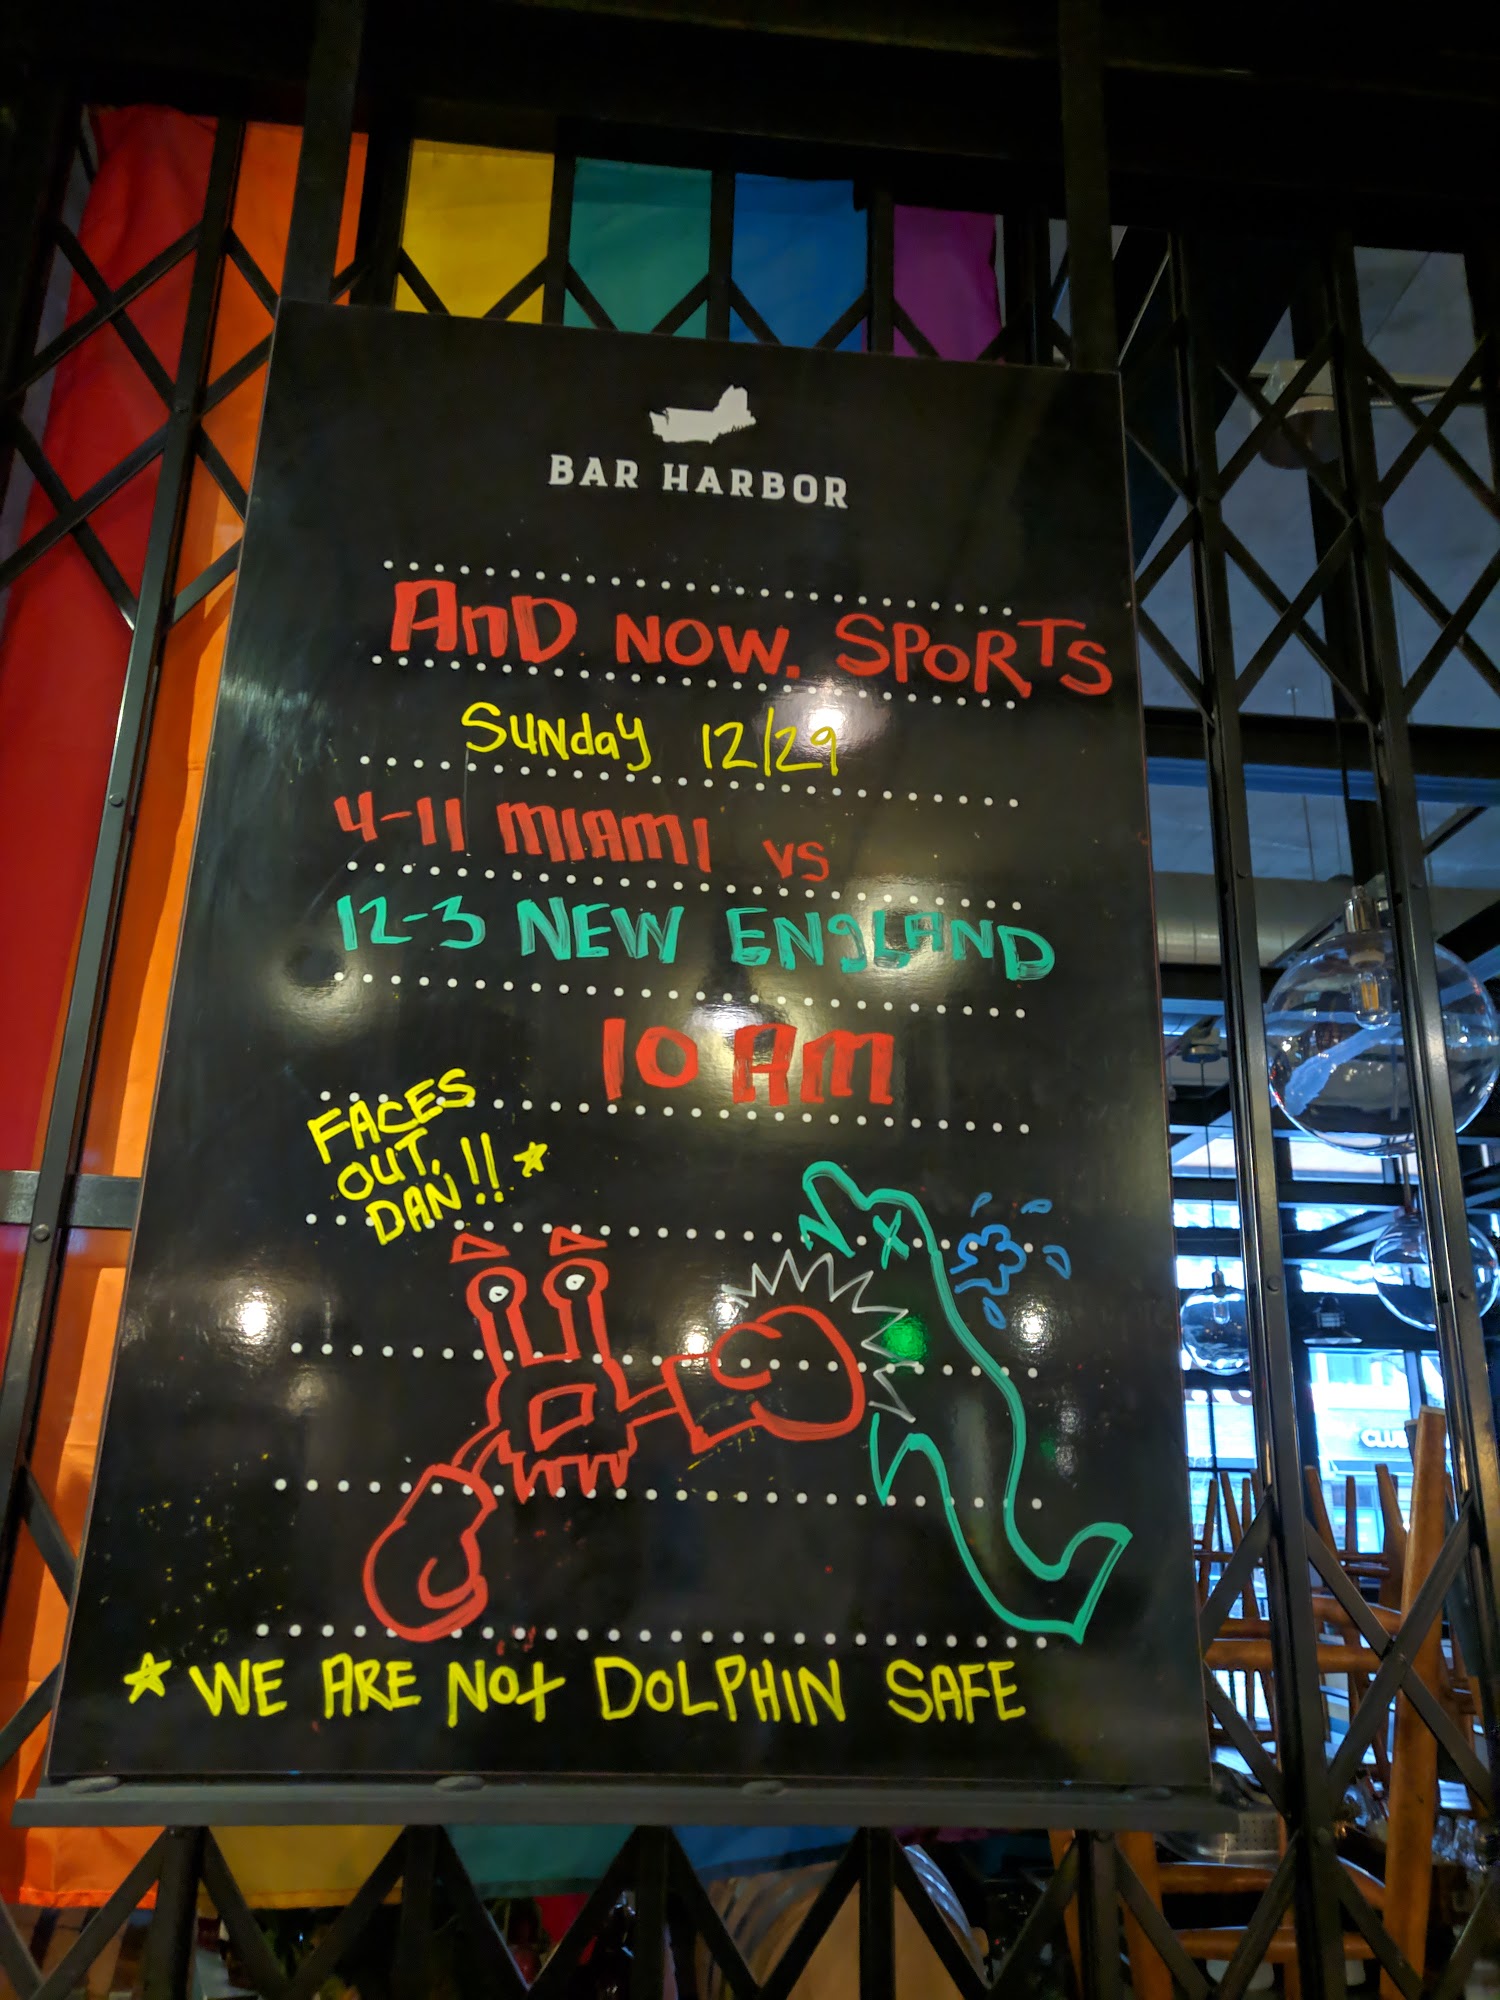 BAR HARBOR
AnD NOW. SPORTS
SUNdaY 12/29
4-11 MIAMI VS
12-3 NEW ENgLAND
10 AM
FACES
OUT,
DAN!! ★
★ WE ARE NOt DOLPHIN SAFE